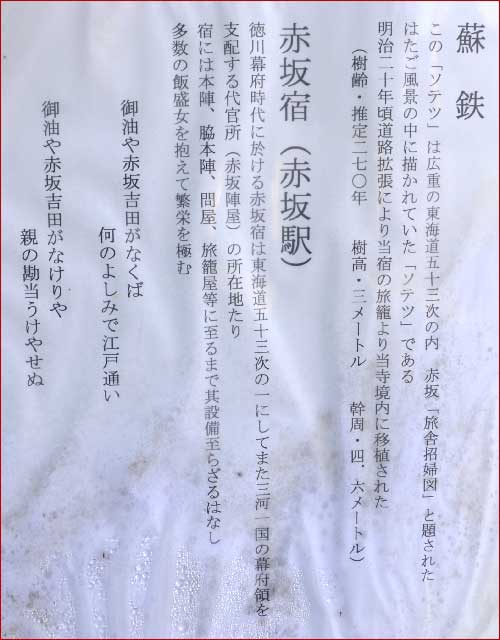 蘇鉄
この「ソテツ」は広重の東海道五十三次の内　赤坂「旅舎招婦図」と題された
はたご風景の中に描かれていた「ソテツ」である
明治二十年頃道路拡張により当宿の旅籠より当寺境内に移植された
（樹齢・推定二七〇年　樹高・三メートル　幹周・四．六メートル）
赤坂宿（赤坂駅）
徳川幕府時代に於ける赤坂宿は東海道五十三次の一にしてまた三河一国の幕府領を
支配する代官所（赤坂陣屋）の所在地たり
宿には本陣、脇本陣、問屋、旅籠屋等に至るまで其設備至らざるはなし
多数の飯盛女を抱えて繁栄を極む
御油や赤坂吉田がなくば
何のよしみで江戸通い
御油や赤坂吉田がなけりや
親の勘当うけやせぬ